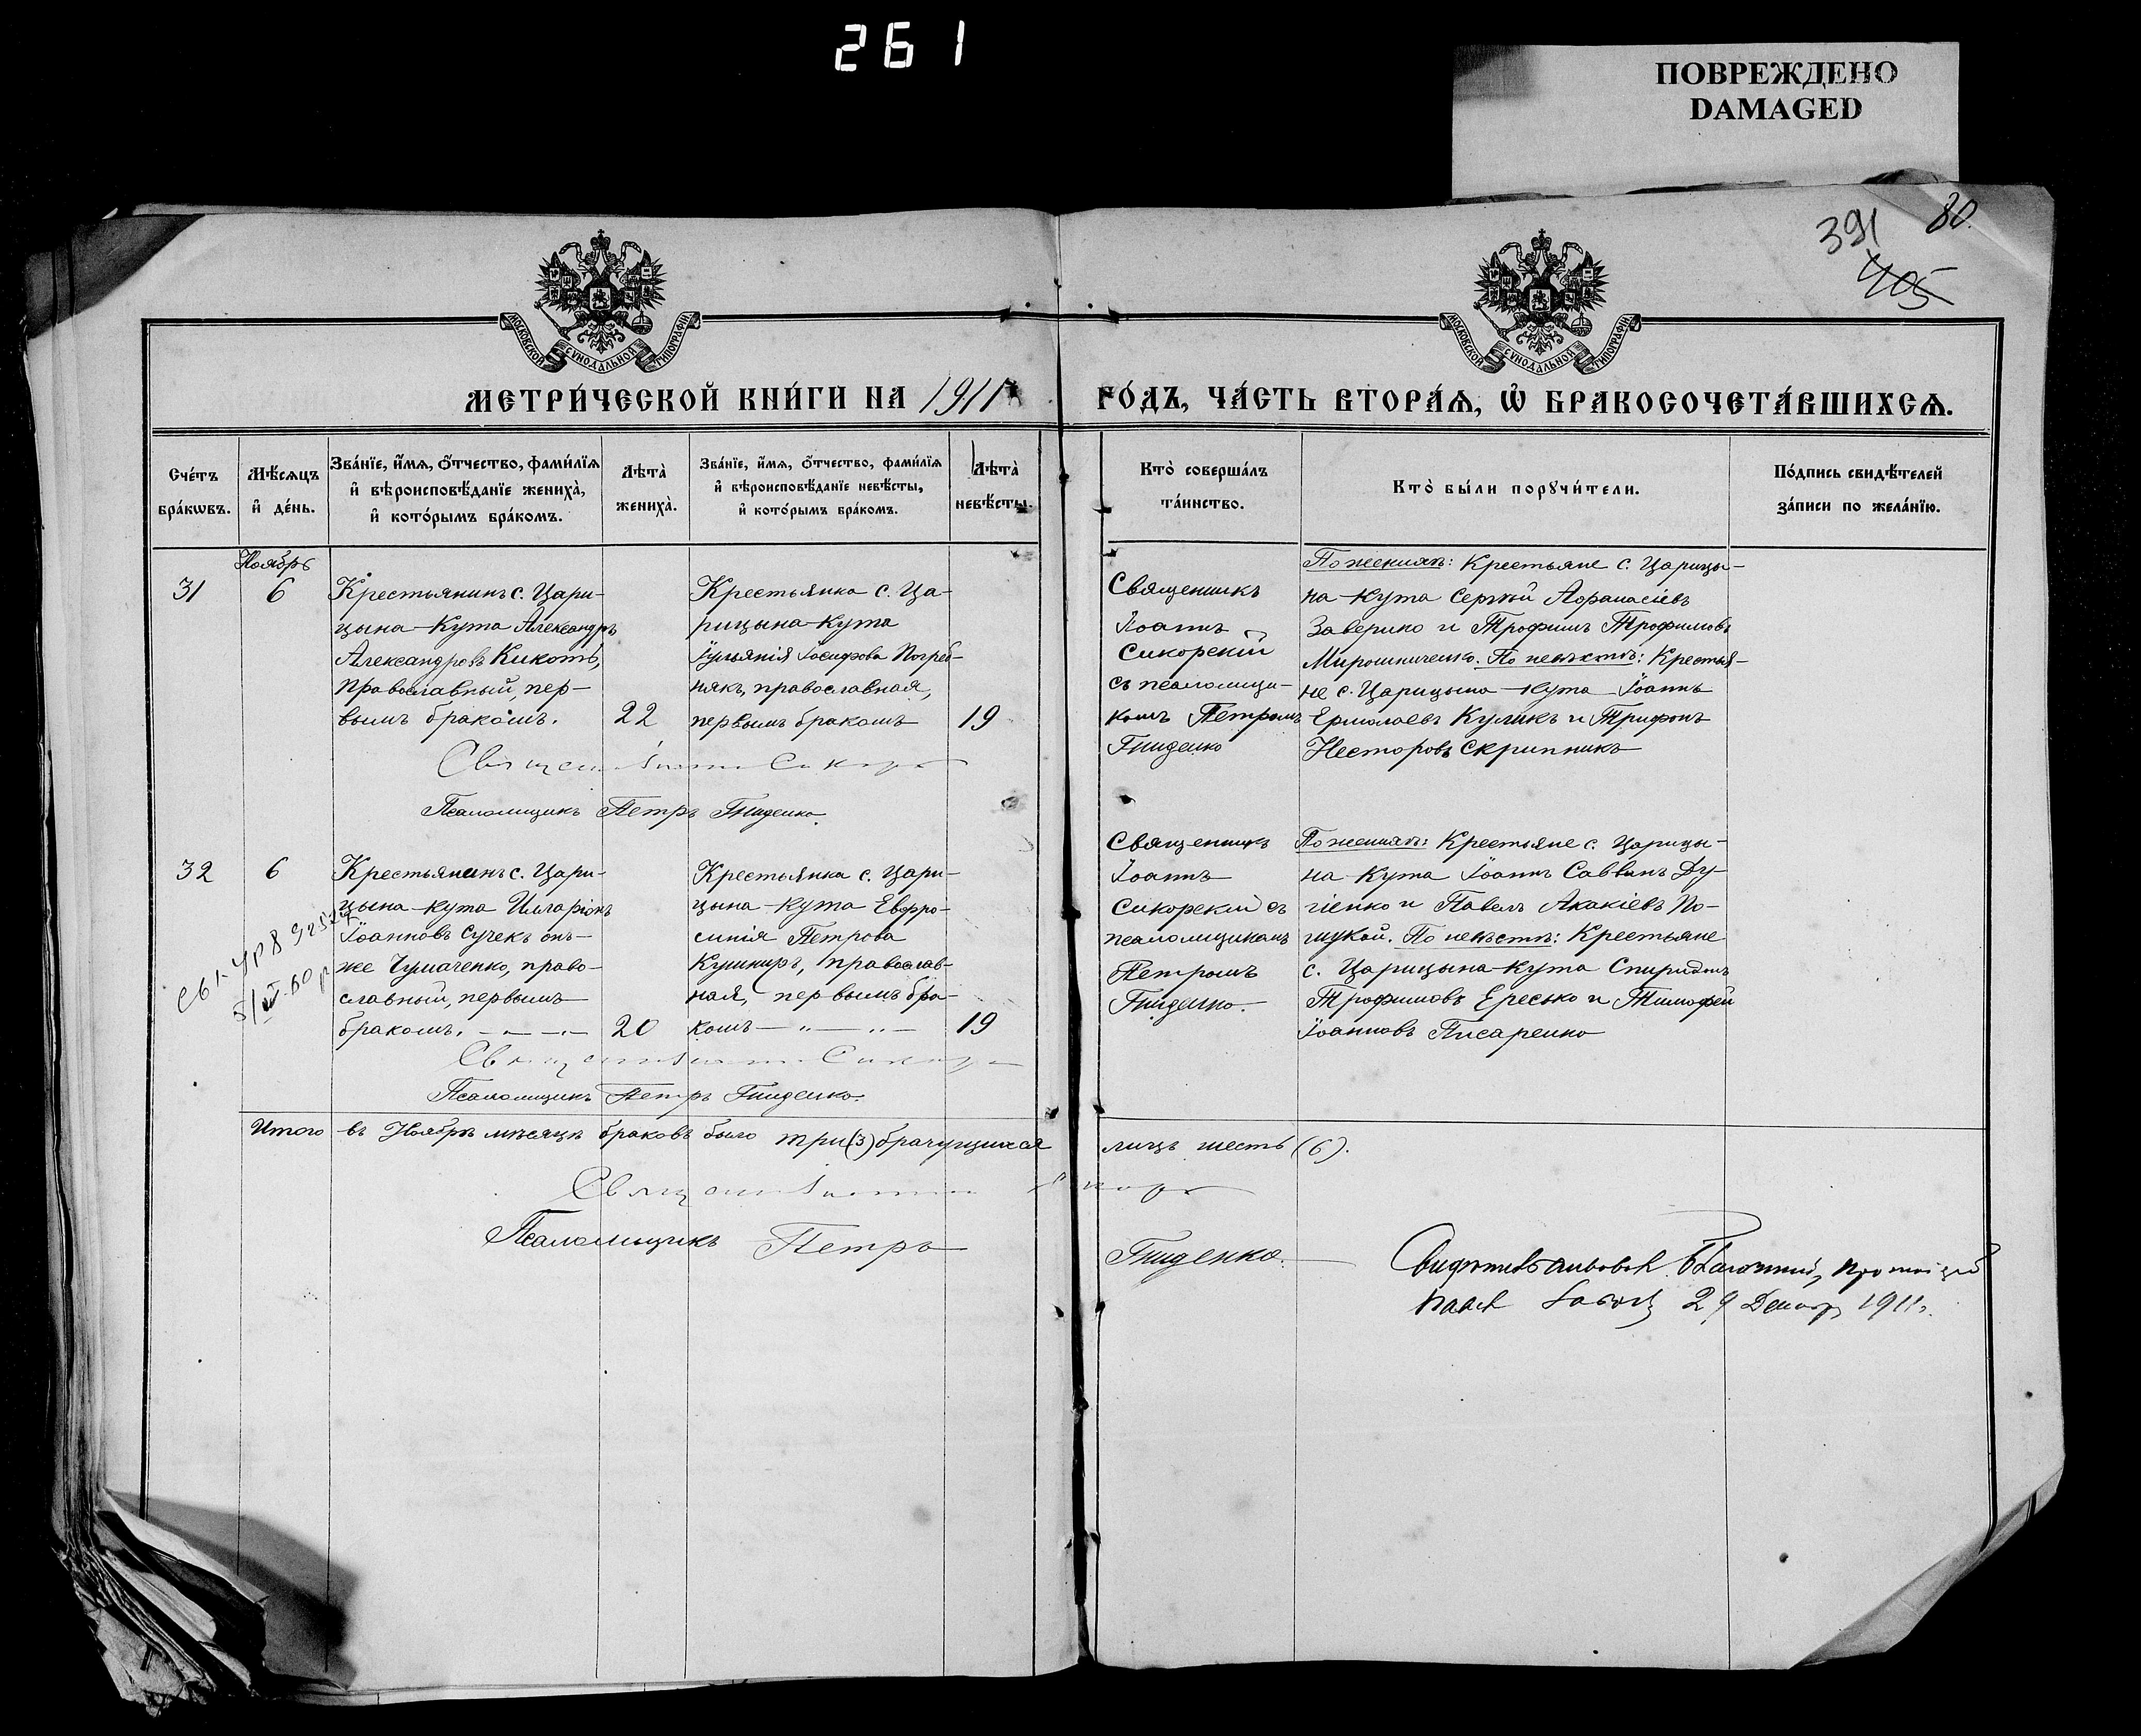 261
ПОВРЕЖДЕНО
DAMAGED
391
80.
405
МОСКОВСКОЙ СУНОДАЛЬНОЙ ТИПОГРАФІИ
МОСКОВСКОЙ СУНОДАЛЬНОЙ ТИПОГРАФІИ
МЕТРИ́ЧЕСКОЙ КНИ́ГИ НА 1911
ГО́ДЪ, ЧА́СТЬ ВТОРА́Ѧ, Ѡ҆ БРАКОСОЧЕТА́ВШИХСѦ.
Сче́тъ
бра́кѡвъ.
Мѣ́сѧцъ
и҆ де́нь.
Зва́нїе, и҆́мѧ, ѻ҆́тчество, фами́лїѧ
и҆ вѣроисповѣ́данїе жениха̀,
и҆ кото́рымъ бра́комъ.
Лѣта̀
жениха̀.
Зва́нїе, и҆́мѧ, ѻ҆́тчество, фами́лїѧ
и҆ вѣроисповѣ́данїе невѣ́сты,
и҆ кото́рымъ бра́комъ.
Лѣта̀
невѣ́сты.
Кто̀ соверша́лъ
та́инство.
Кто̀ бы́ли порꙋчи́тели.
По́дпись свидѣ́телей
за́писи по жела́нїю.
Ноябрь
31
6
Крестьянинъ с. Цари-
цына-Кута Александръ
Александровъ Кикоть,
православный, пер-
вымъ бракомъ.
22
Крестьянка с. Ца-
рицына-Кута
Іульянія Іосифова Погреб-
някъ, православная,
первымъ бракомъ
19
Священникъ
Іоаннъ
Сикорскій
съ псаломщи-
комъ Петромъ
Гниденко
По женихѣ: Крестьяне с. Царицы-
на-Кута Сергѣй Афанасіевъ
Заверико и Трофимъ Трофимовъ
Мирошниченко. По невѣстѣ: Крестья-
не с. Царицына-Кута Іоаннъ
Ермолаевъ Куликъ и Трифонъ
Несторовъ Скрипникъ
Священ Іоаннъ Сикорск
Псаломщикъ Петръ Гниденко.
32
6
Крестьянинъ с. Цари-
цына-Кута Иларіонъ
Іоанновъ Сучекъ онъ-
же Чумаченко, право-
славный, первымъ
бракомъ.
20
Крестьянка с. Цари-
цына-Кута Евфро-
синія Петрова
Кушниръ, православ-
ная, первымъ бра-
комъ
19
Священникъ
Іоаннъ
Сикорскій съ
псаломщикомъ
Петромъ
Гниденко.
По женихѣ: Крестьяне с. Царицы-
на-Кута Іоаннъ Саввинъ Ду-
гіенко и Павелъ Акакіевъ По-
гицкой. По невѣстѣ: Крестьяне
с. Царицына-Кута Спиридонъ
Трофимовъ Ересько и Тимофей
Іоанновъ Писаренко
Священ Іоаннъ Сикорск
Псаломщикъ Петръ Гниденко.
Итого въ Ноябрѣ мѣсяцѣ браковъ было три (3) брачущихся лицъ шесть (6).
Священ Іоаннъ Сикорск
Псаломщикъ Петръ Гниденко.
Свидѣтельствовалъ Благочинный, протоіерей
Павел 29 Декабр 1911 г.